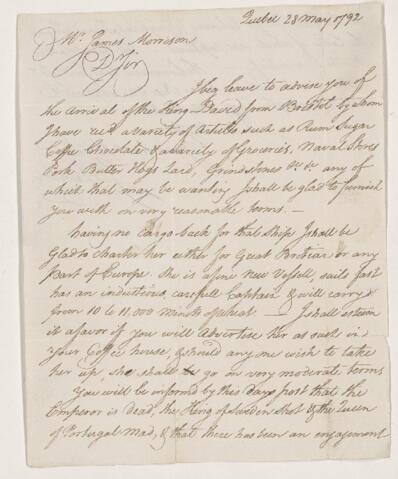 Quebec 28 May 1792
Mr. James Morrison
Dr Sir
I beg leave to advise you of
the arrival of the King David from Bristol by whom
I have recd a Variety of Articles such as Rum Sugar
Coffee Chocolate & a variety of Groceries. Naval Stores
Pork Butter Hogs Lard, Grindstones &c. &c. any of
which that may be wanting I shall be glad to furnish
you with on very reasonable terms. —
having no Cargo back for that Ship I shall be
Glad to charter her either for Great Britian or any
Part of Europe. She is a fine New Vessell, sails fast
has an industrious, carefull Captain & will carry
from 10 to 11,000 Minots of wheat. — I shall esteem
it a favor if you will Advertise her as such in
your Coffee house, & should any one wish to take
her up, she shall go on very moderate terms
You will be informed by this days post that the
Emperor is dead, the King of Sweden Shot & the Queen
of Portugal Mad, & that there has been an engagement